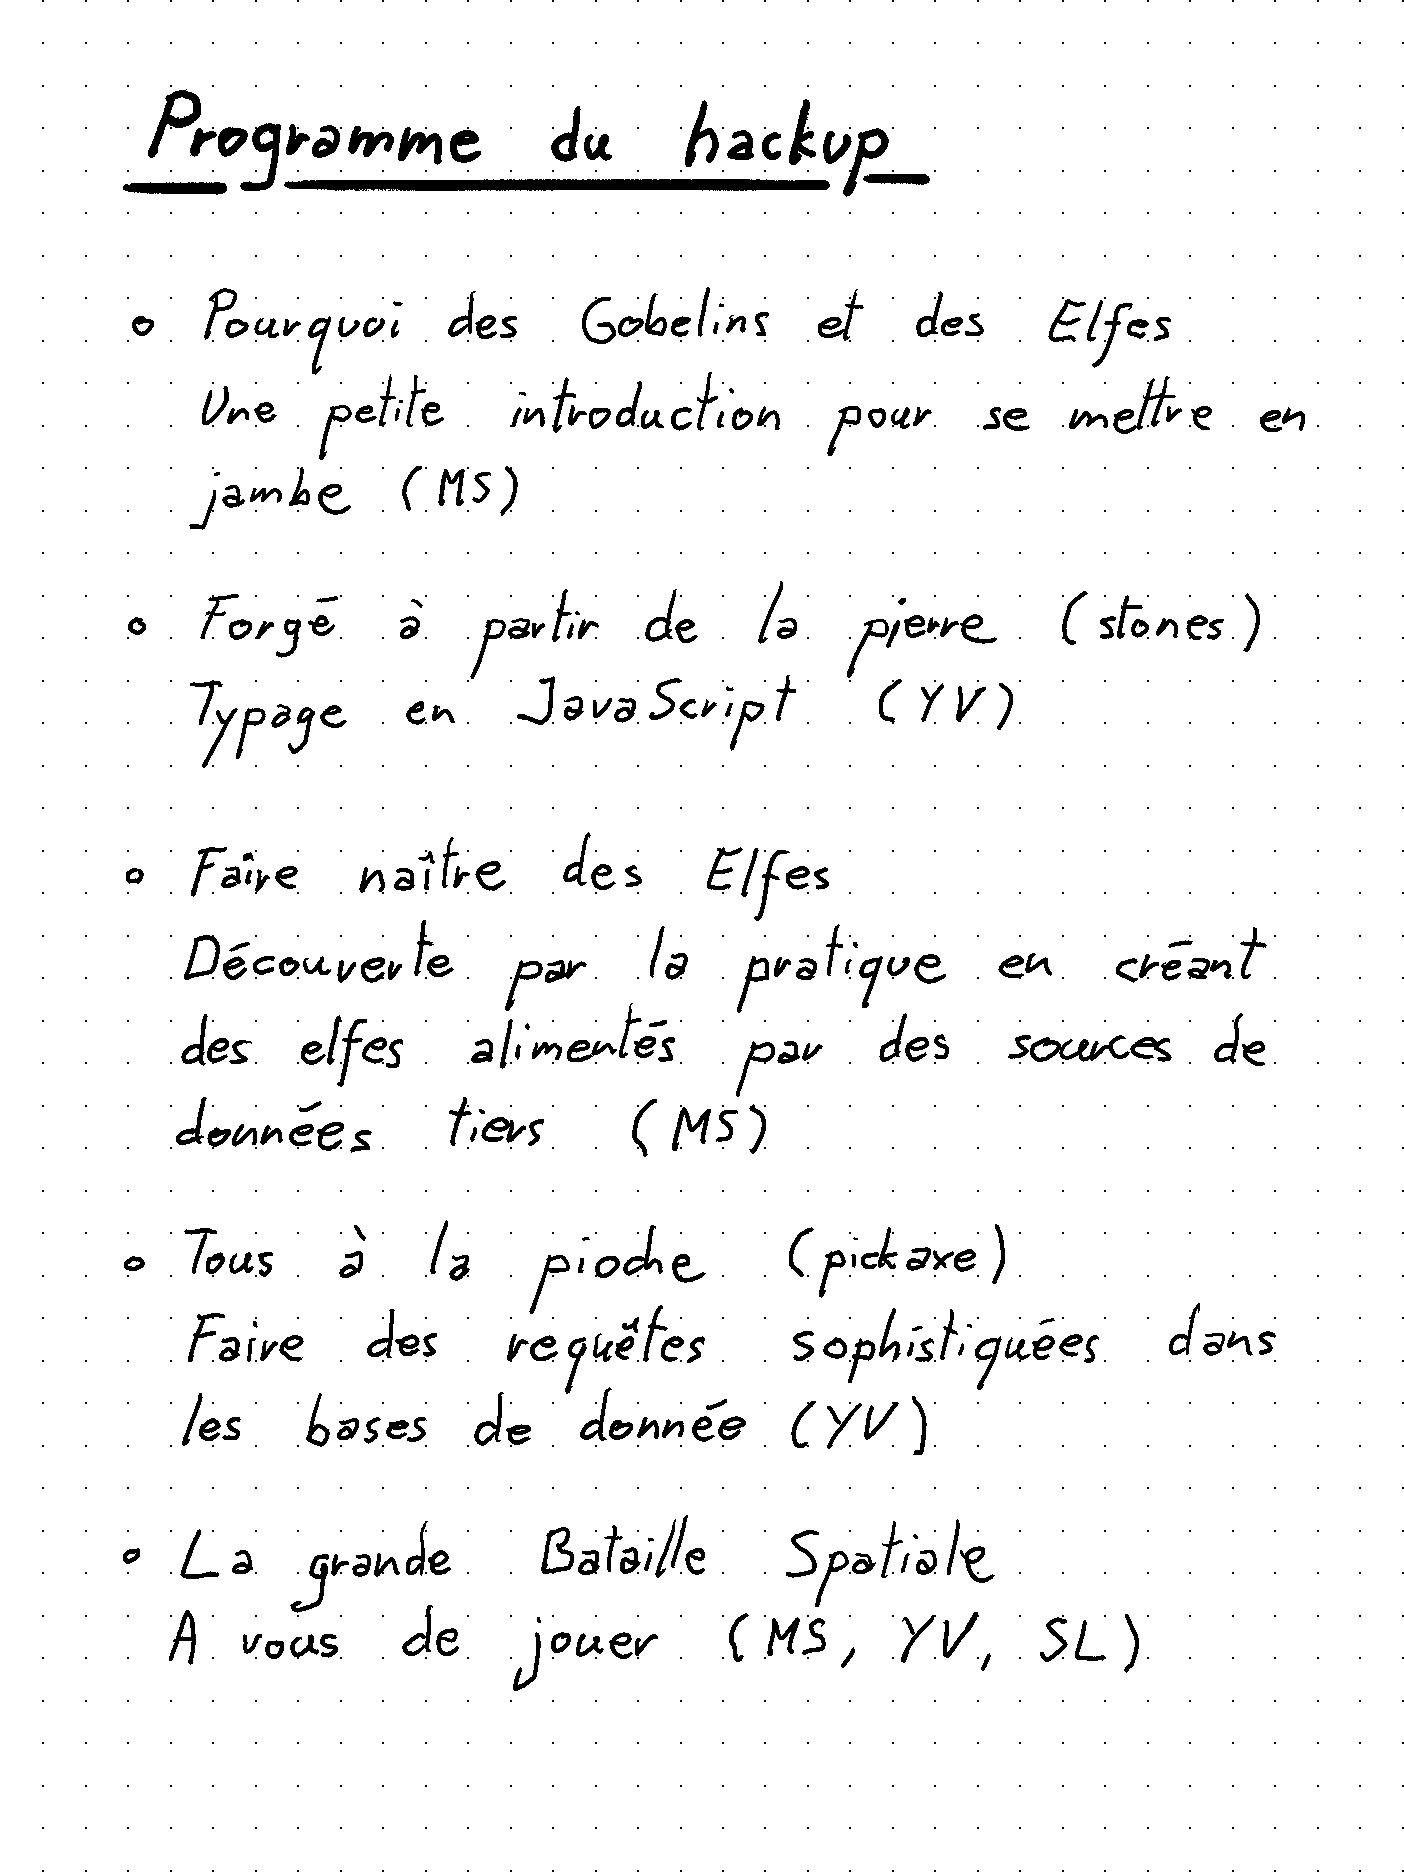 Programme du hackup
o Pourquoi des Gobelins et des Elfes
Une petite introduction pour se mettre en
jambe (MS)
o Forgé à partir de la pierre (stones)
Typage en JavaScript (YV)
o Faire naître des Elfes
Découverte par la pratique en créant
des elfes alimentés par des sources de
données tiers (MS)
o Tous à la pioche (pickaxe)
Faire des requêtes sophistiquées dans
les bases de donnée (YV)
o La grande Bataille Spatiale
A vous de jouer (MS, YV, SL)